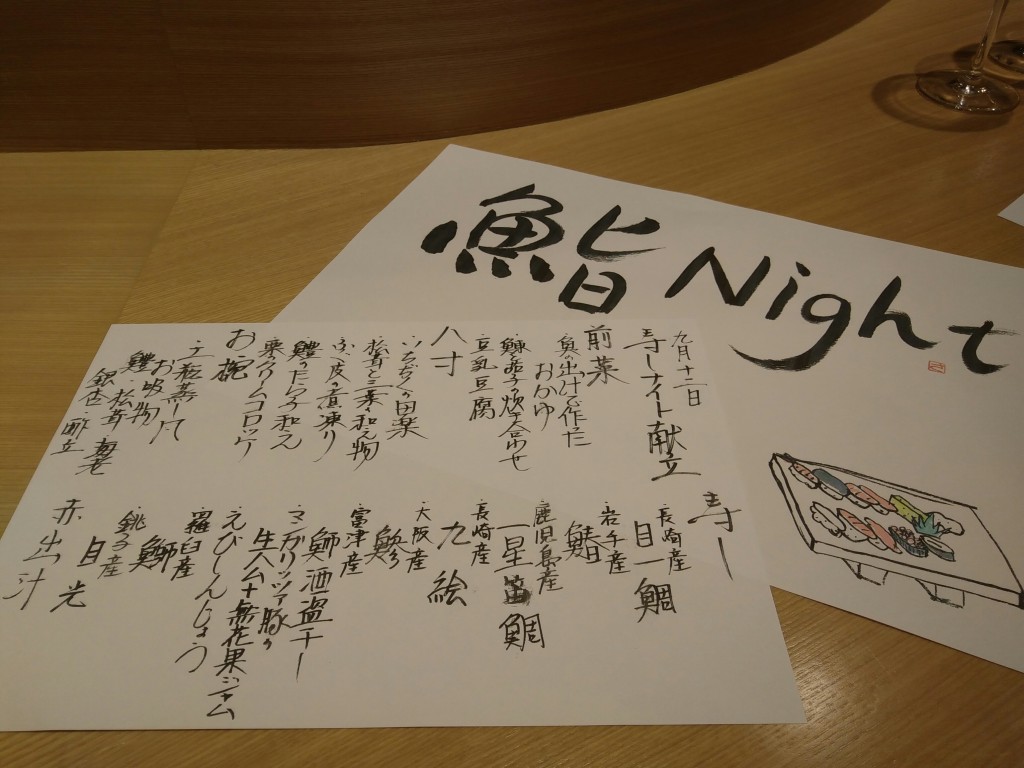 鮨 Night
九月十二日
寿しナイト献立
前菜
・魚の出汁で作った
おかゆ
・鰊と茄子炊き合わせ
・豆乳豆腐
八寸
・いちぢくの田楽
・松茸と三つ葉の和え物
・ふぐ皮の煮凍り
・鱧のたらこ和え
・栗クリームコロッケ
お椀
・土瓶蒸し
お吸物
鱧・松茸・海老
銀杏・
寿し
・長崎産
目一鯛
・岩手産
鰆
・鹿児島産
一星笛鯛
・長崎産
九絵
・大阪産
鯵
・富津産
鰤酒盗干し
・マンガリッツァ豚の
生ハム+無花果ジャム
・えびしんじょう
・羅臼産
鰤
・銚子産
目光
赤出汁